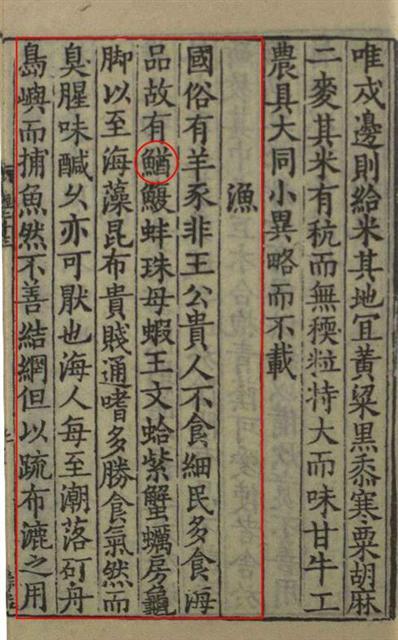 唯戍邊則給米其地冝黃粱黑黍寒粟胡麻
二麥其米有秔而無稬粒特大而味甘牛工
農具大同小異略而不載
漁
國俗有羊豕非王公貴人不食細民多食海
品故有鰌鰒蚌珠母蝦王文蛤紫蟹蠣房龜
脚以至海藻昆布貴賤通嗜多勝食氣然而
臭腥味醎乆亦可厭也海人每至潮落矴舟
島嶼而捕魚然不善結網但以疏布漉之用